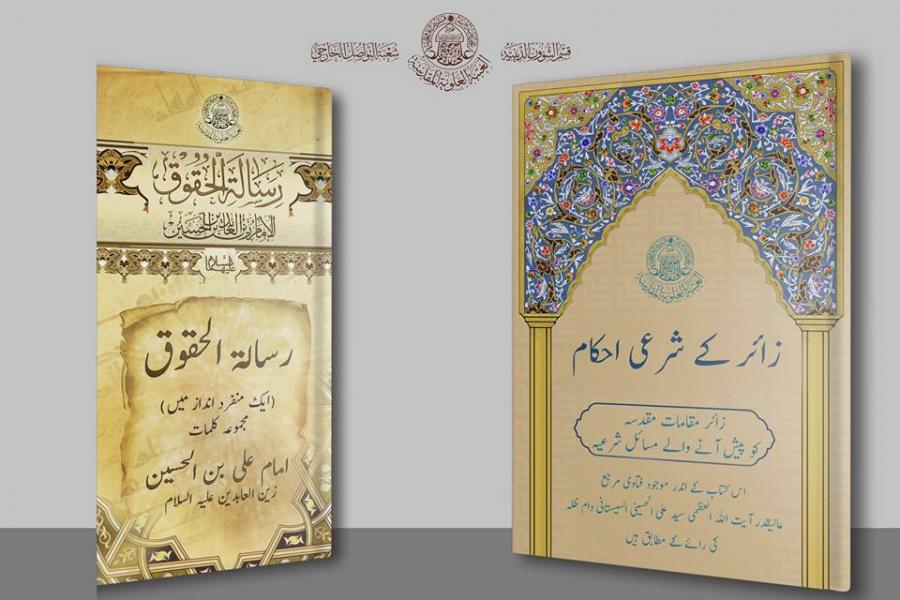 قسم الشؤون الدينية
شعبة التواصل الخارجي
العتبة العلوية المقدسة
رسالة الحقوق
الإمام زين العابدين علي بن الحسين
عليهما السلام
رسالۃ الحقوق
(ایک منفرد انداز میں)
مجموعہ کلمات
امام علی بن الحسین
زین العابدین علیہ السلام
العتبة العلوية المقدسة
زائر کے شرعی احکام
زائر مقامات مقدسہ
کو پیش آنے والے مسائل شرعیہ
اس کتاب کے اندر موجود فتاوی مرجع
عالیقدر آیت اللہ العظمی سید علی الحسینی السیستانی دام ظلہ
کی رائے کے مطابق ہیں